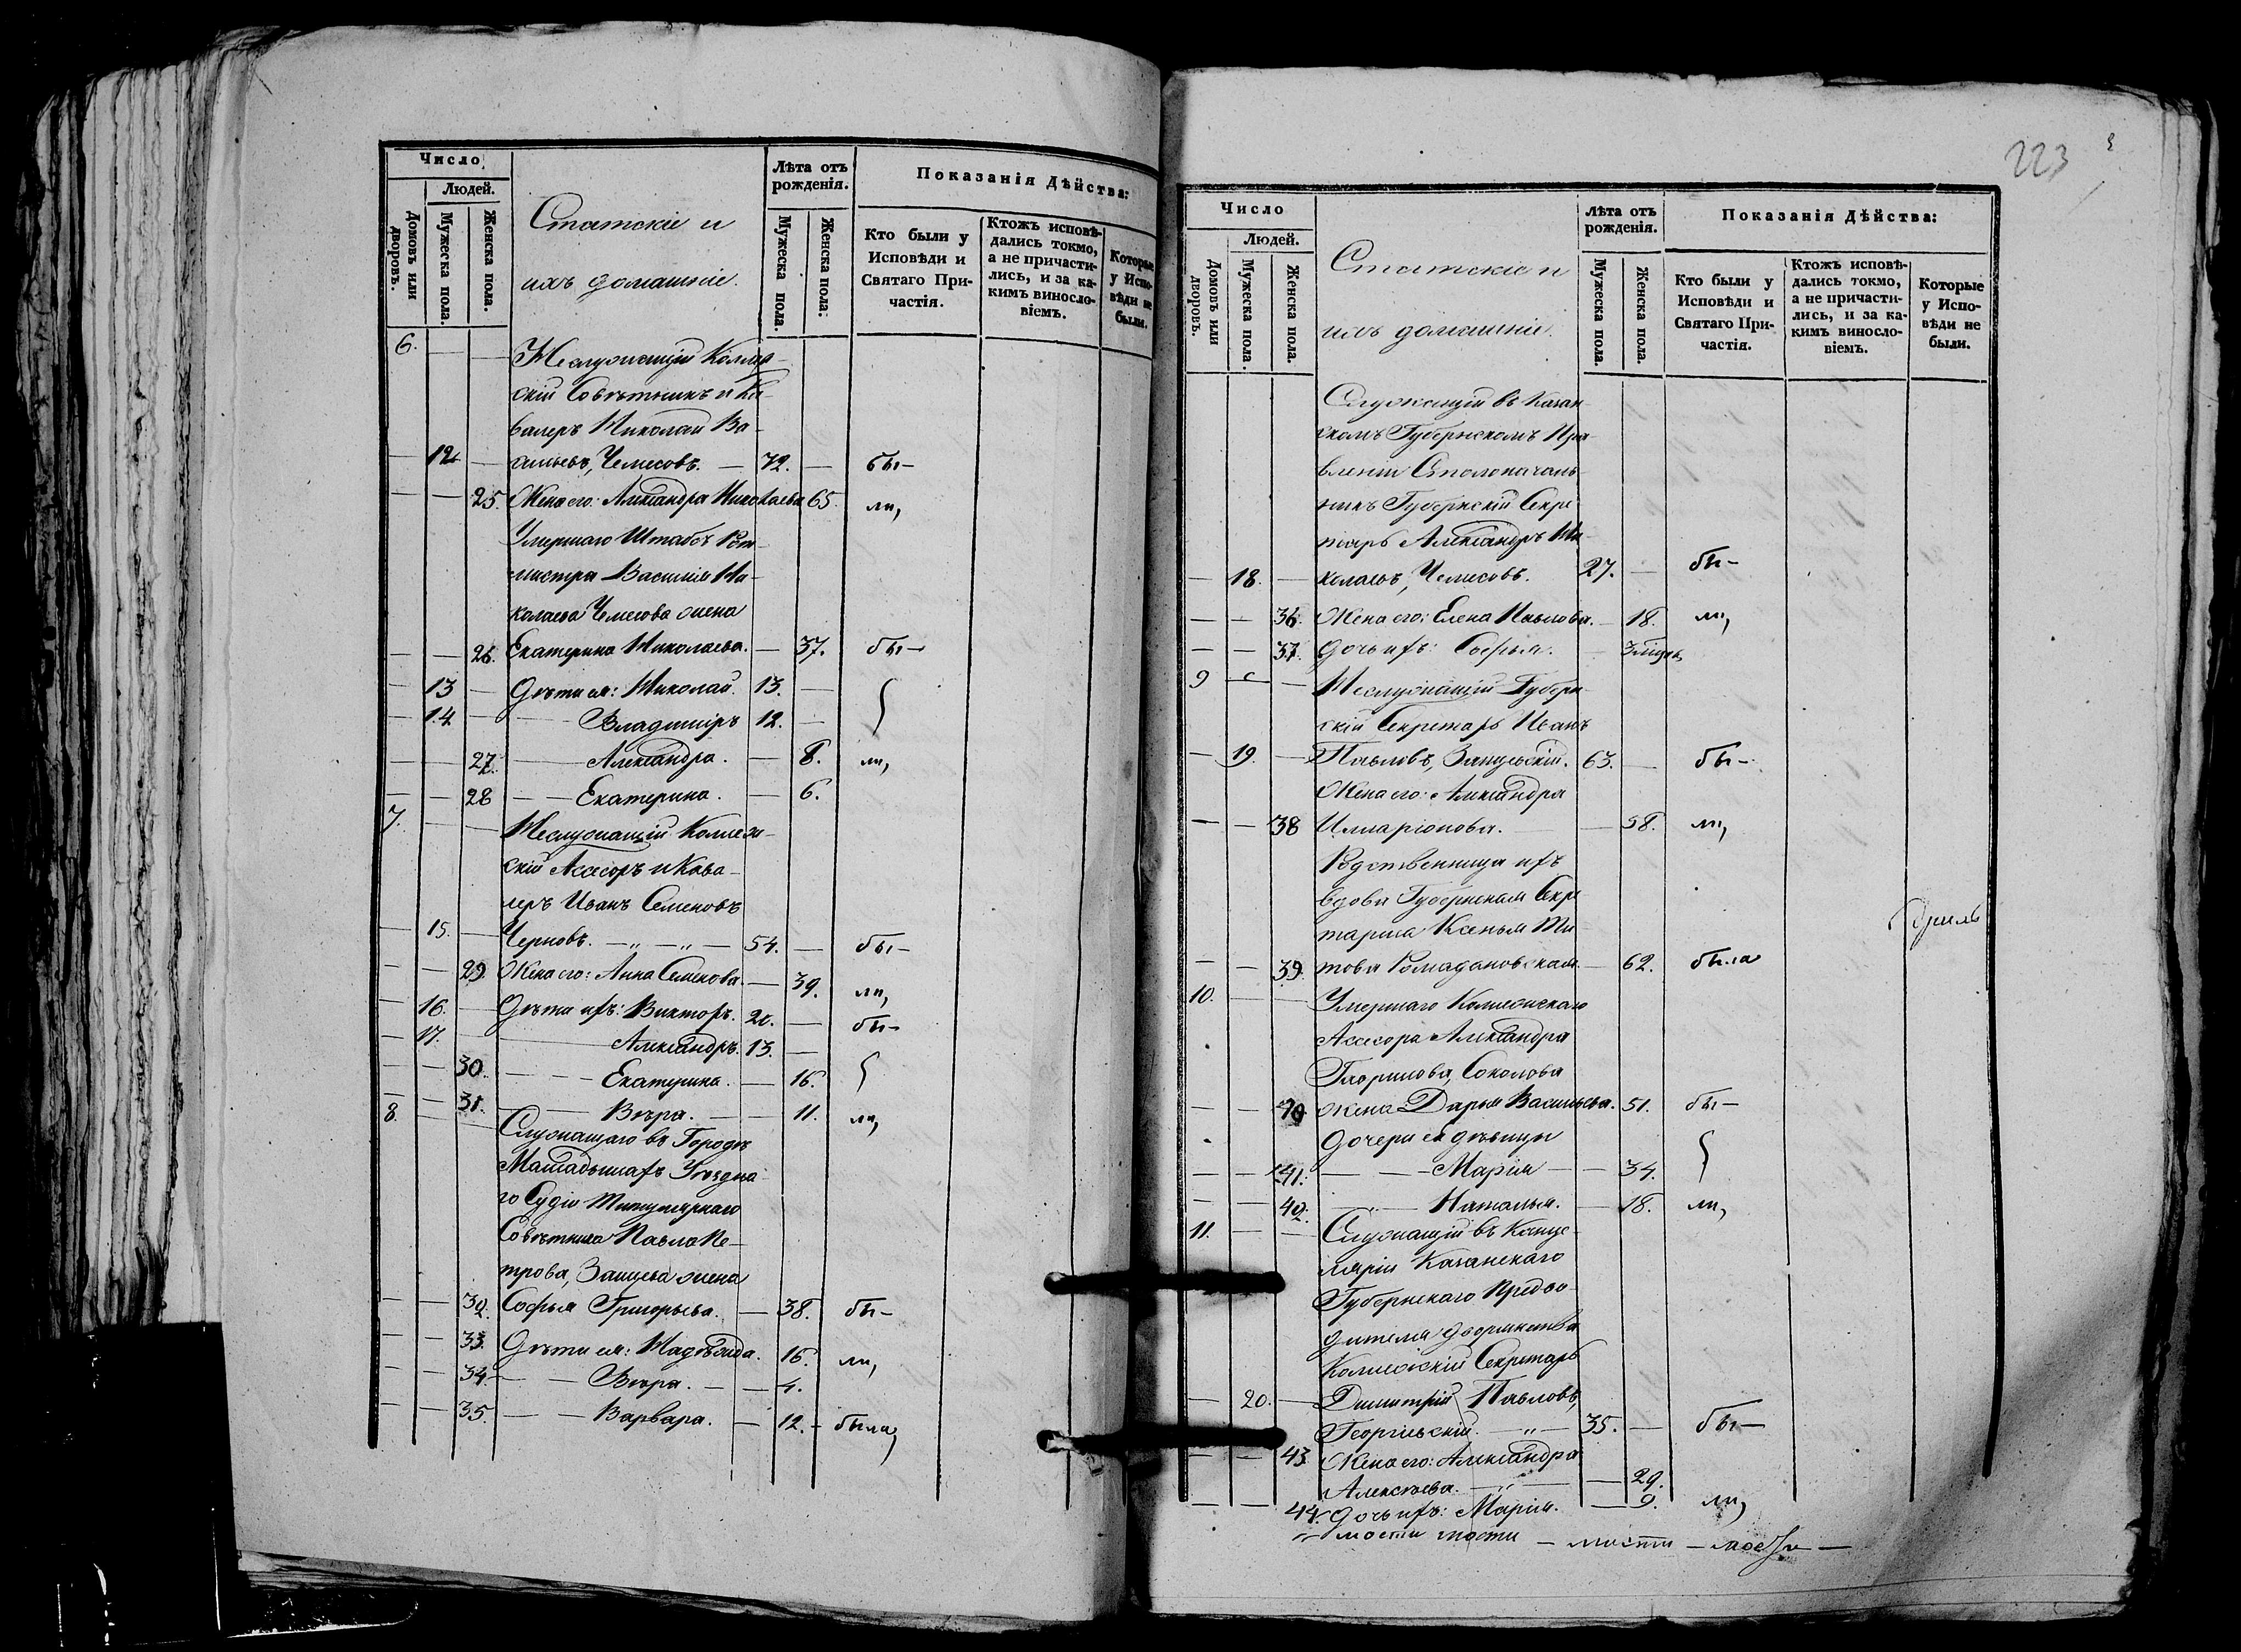 Число
Людей.
Домовъ или дворовъ.
Мужеска пола.
Женска пола.
Статскіе и
ихъ домашніе.
Лѣта отъ рожденія.
Мужеска пола.
Женска пола:
Показанія Дѣйства:
Кто были у Исповѣди и Святаго Причастія.
Ктожъ исповѣдались токмо, а не причастились, и за какимъ винословіемъ.
Которые у Исповѣди не были.
6. — — Неслужащій Коллеж-
скій Совѣтникъ и Ка-
валеръ Николай Ва-
— 12 — сильевъ, Чемесовъ. — 72. — бы-
— — 25. Жена его: Александра Николаева 65. ли,
Умершаго Штабсъ Рот-
мистра Василія Ни-
колаева Чемесова жена
— — 26. Екатерина Николаева. — 37. бы-
— 13 — Дѣти ея: Николай. 13. —
— 14 — — Владиміръ 12. —
— — 27. — Александра. — 8. ли,
— — 28 — — Екатерина. — 6.
7. — — Неслужащій Коллеж-
скій Асесоръ и Кава-
леръ Иванъ Семеновъ
— 15. — Черновъ. — „ — „ — 54. — бы-
— — 29. Жена его: Анна Семенова. — 39. ли,
— 16. — Дѣти ихъ: Викторъ. 20. — бы-
— 17. — Александръ. 13. —
— — 30. — — Екатерина. — 16.
— — 31. — Вѣра. — — 11. ли,
8. — — Служащаго въ Городѣ
Мамадышахъ Уѣздна-
го Судіи Титулярнаго
Совѣтника Павла Пе-
трова, Зайцева жена
— — 32. Софья Григорьева. — 38. бы-
— — 33. Дѣти ея: Надѣжда. 16. ли,
— — 34. — — Вѣра. — — 4.
— — 35. — — Варвара. — 12. — была,
223
Число
Людей.
Домовъ или дворовъ.
Мужеска пола
Женска пола.
Статскіе и
ихъ домашніе.
Лѣта отъ рожденія.
Мужеска пола.
Женска пола.
Показанія Дѣйства:
Кто были у Исповѣди и Святаго Причастія.
Ктожъ исповѣдались токмо, а не причастились, и за какимъ винословіемъ.
Которые у Исповѣди не были.
Служащій въ Казан-
скомъ Губернскомъ Пра-
вленіи Столоначаль-
никъ Губернскій Секре-
тарь Александръ Ни-
— 18. — колаевъ, Чемесовъ. 27. — бы-
— — 36. Жена его: Елена Павлова. — 18. ли,
— — 37. Дочь ихъ: Софья. —
9 — — Неслужащій Губерн-
скій Секретарь Иванъ
— 19. — Павловъ, 63. — бы-
Жена его: Александра
— — 38 Илларіонова. — — 58. ли,
Родственница ихъ
вдова Губернская Секре-
тарша Ксенья Ти-
— — 39. това Ромадановская. — 62. была
10. — — Умершаго Коллежскаго
Асесора Александра
Гаврилова, Соколова
— — 40 жена Дарья Васильева. 51. бы-
дочери ея дѣвицы
— — 41. — — Марія — — 34.
— — 42. — Наталья. — 18. ли,
11. — — Служащій въ Канце-
ляріи Казанскаго
Губернскаго Предво-
дителя дворянства
Коллежскій Секретарь
— 20. — Димитрій Павловъ,
Георгіевскій. — „ — 35. — бы-
— — 43 Жена его: Александра
Алексѣева. — — 29.
— — 44. Дочь ихъ: Марія. — 9. ли,